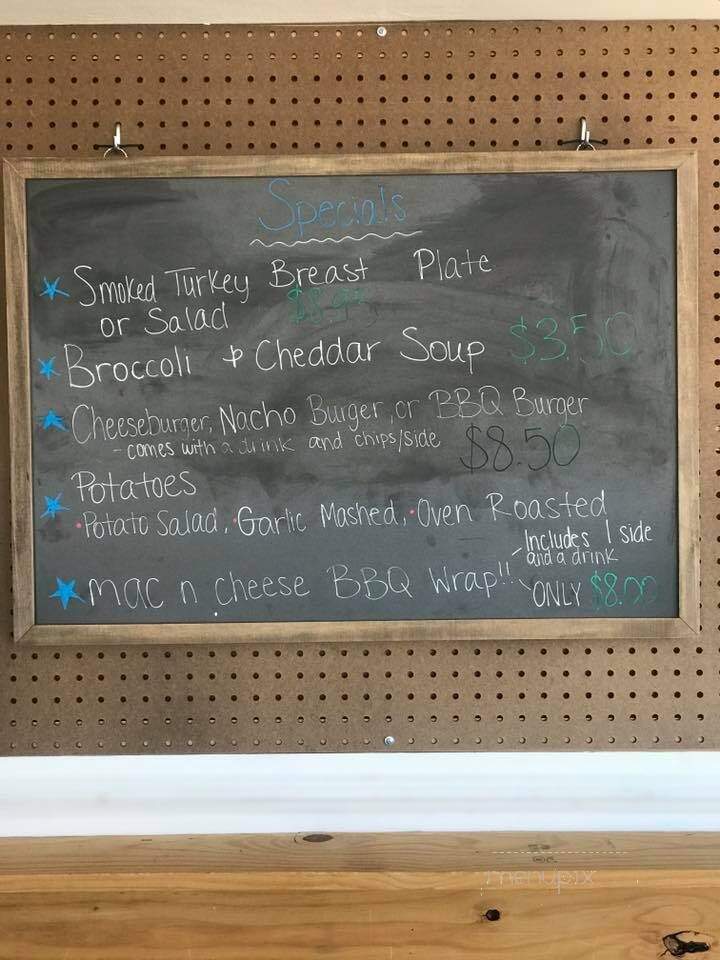 Specials
Smoked Turkey Breast Plate
or Salad
Broccoli & Cheddar Soup $3.50
Cheeseburger, Nacho Burger, or BBQ Burger
- comes with a drink and chips/side $8.50
Potatoes
• Potato Salad, • Garlic Mashed, • Oven Roasted
mac n cheese BBQ Wrap!! Includes 1 side
and a drink
ONLY $8.00
menupix